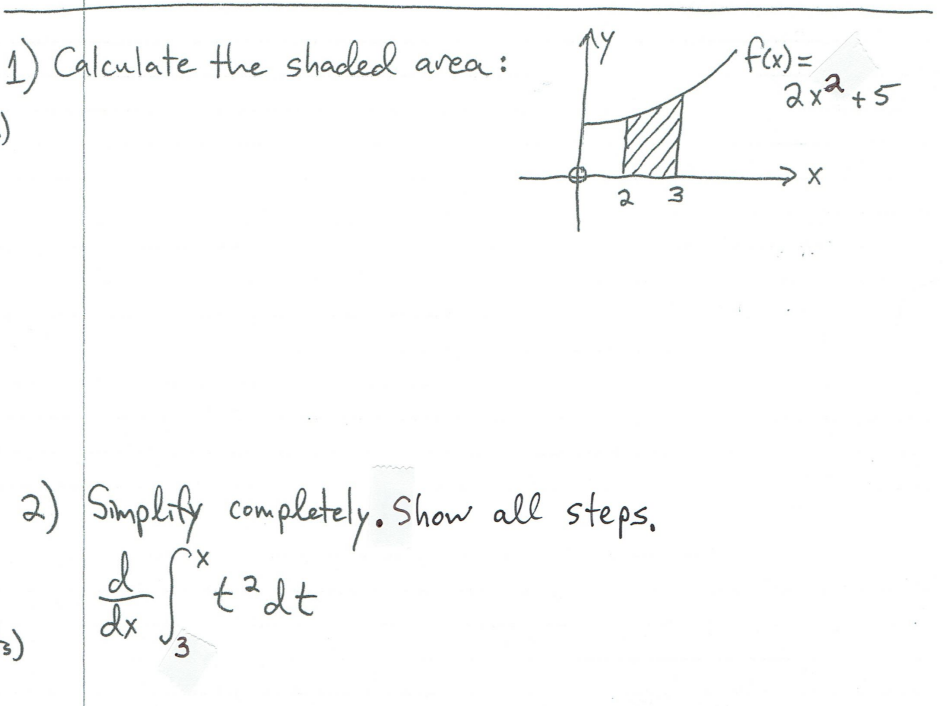 1) Calculate the shaded area:
y
f(x) =
2x² + 5
x
2 3
)
2) Simplify completely. Show all steps.
d/dx ∫₃ˣ t² dt
3)